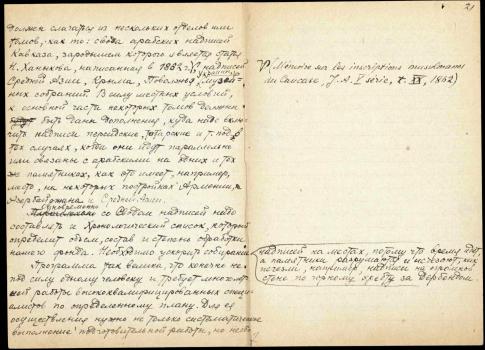 должен слагаться из нескольких отделов или
томов, как то: свода арабских надписей
Кавказа, зародышем которого является статья
Н. Ханыкова, написанная в 1862 г., надписей
Украины
Средней Азии, Крыма, Поволжья,
ных собраний. В силу местных условий,
к основной части некоторых томов должны
быть даны дополнения, куда надо вклю-
чить надписи персидские, татарские и т. под. в
тех случаях, когда они идут параллельно
или связаны с арабскими на одних и тех
же памятниках, как это имеет, например,
место, на некоторых постройках Армении,
Азербайджана и Средней Азии.
Одновременно
со Сводом надписей надо
составлять и Хронологический список, который
определит объем, состав и степень обработки
нашего фонда. Необходимо ускорить собирание
Программа так велика, что конечно не
под силу одному человеку и требует многолет-
ней работы высококвалифицированных специ-
алистов по определенному плану. Для ее
осуществления нужно не только систематическое
выполнение подготовительной работы, но
21
Mémoire sur les inscriptions musulmanes
du Caucase, J.A. V série, t. XX, 1862)
надписей на местах, потому что время идет,
а памятники разрушаются и исчезают, их
например, надписи на
стене по горному хребту за Дербентом.